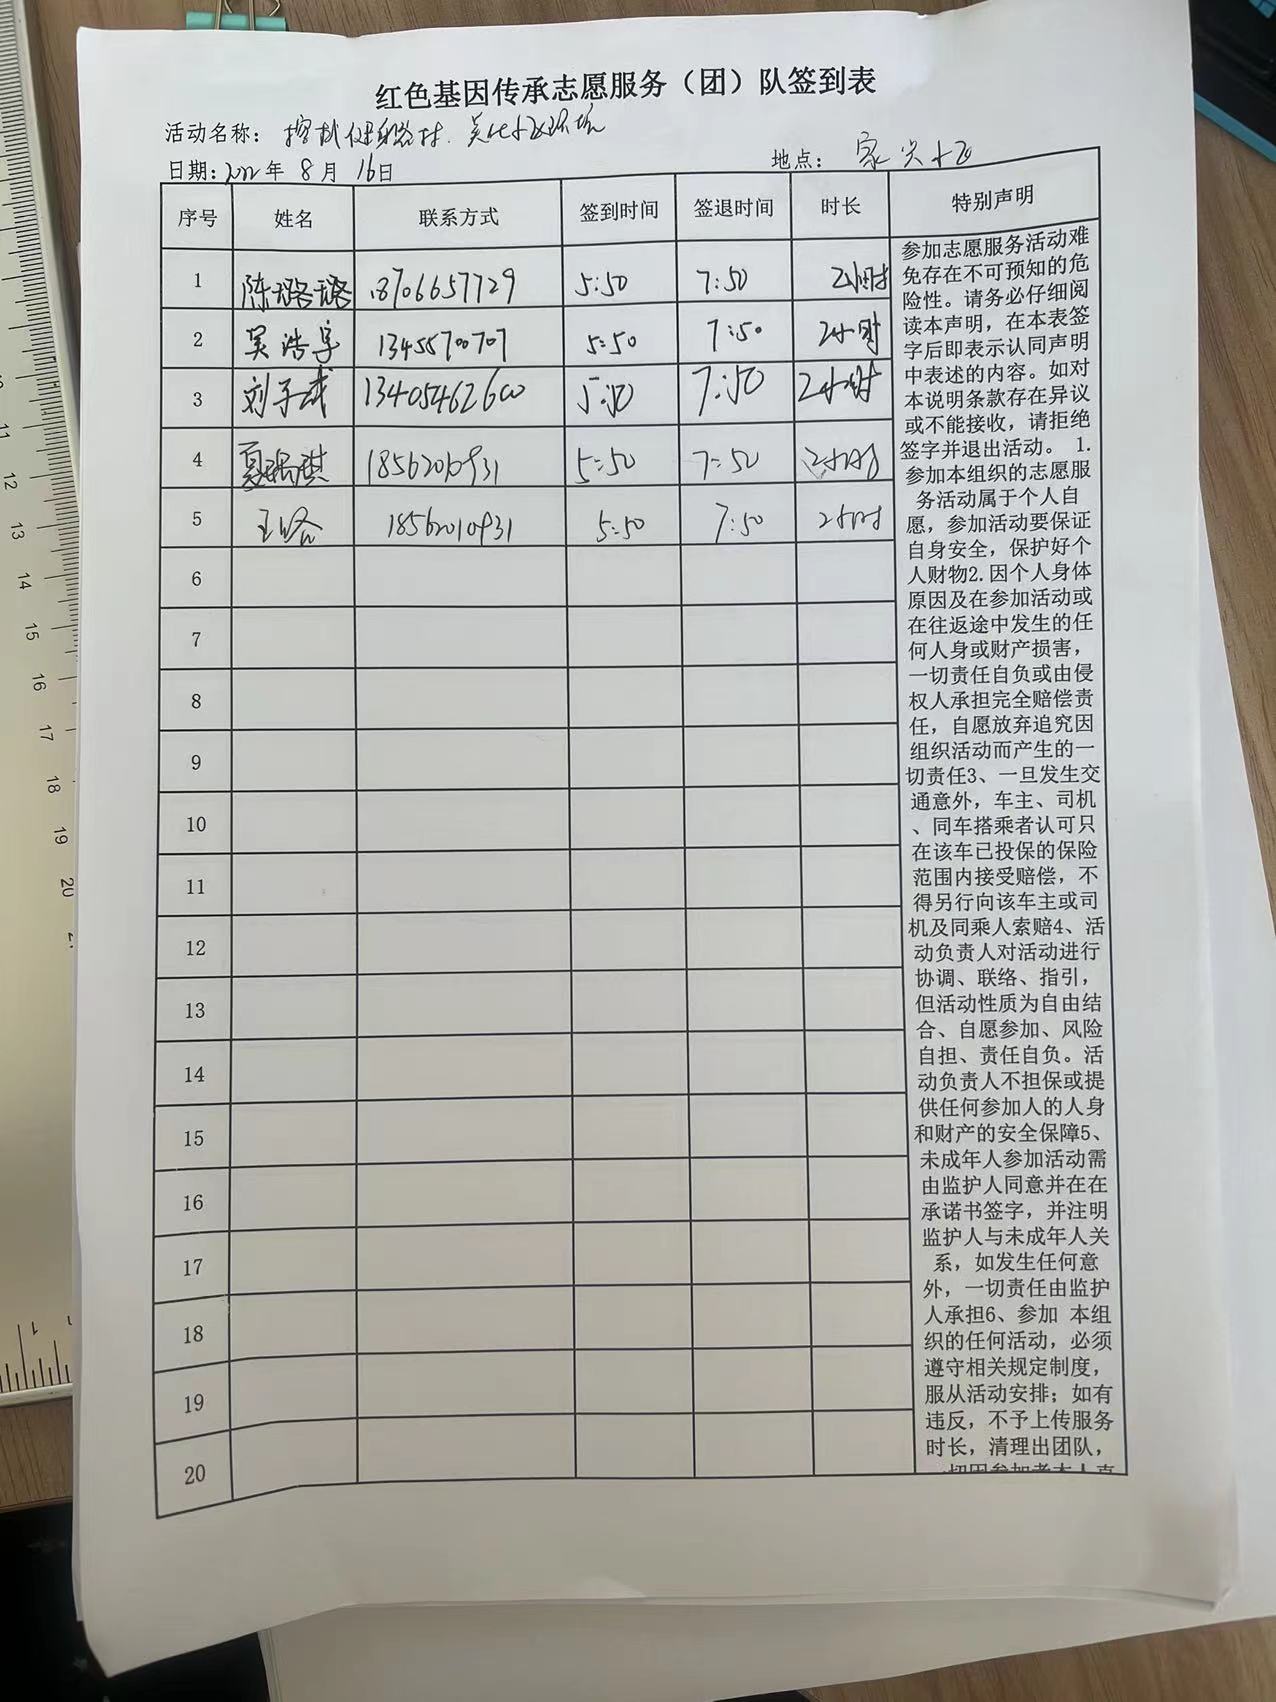 红色基因传承志愿服务（团）队签到表
活动名称： 擦拭健身器材、美化小区环境
日期：2022年 8 月 16日 地点：
序号 姓名 联系方式 签到时间 签退时间 时长 特别声明
1 陈璐璐 18706657729 5:50 7:50 2小时
2 吴浩宇 13455700707 5:50 7:50 2小时
3 刘子武 13405462600 5:50 7:50 2小时
4 夏瑞琪 18562010931 5:50 7:50 2小时
5 王 18562010931 5:50 7:50 2小时
6
7
8
9
10
11
12
13
14
15
16
17
18
19
20
参加志愿服务活动难
免存在不可预知的危
险性。请务必仔细阅
读本声明，在本表签
字后即表示认同声明
中表述的内容。如对
本说明条款存在异议
或不能接收，请拒绝
签字并退出活动。 1.
参加本组织的志愿服
务活动属于个人自
愿，参加活动要保证
自身安全，保护好个
人财物2.因个人身体
原因及在参加活动或
在往返途中发生的任
何人身或财产损害，
一切责任自负或由侵
权人承担完全赔偿责
任，自愿放弃追究因
组织活动而产生的一
切责任3、一旦发生交
通意外，车主、司机
、同车搭乘者认可只
在该车已投保的保险
范围内接受赔偿，不
得另行向该车主或司
机及同乘人索赔4、活
动负责人对活动进行
协调、联络、指引，
但活动性质为自由结
合、自愿参加、风险
自担、责任自负。活
动负责人不担保或提
供任何参加人的人身
和财产的安全保障5、
未成年人参加活动需
由监护人同意并在在
承诺书签字，并注明
监护人与未成年人关
系，如发生任何意
外，一切责任由监护
人承担6、参加 本组
织的任何活动，必须
遵守相关规定制度，
服从活动安排；如有
违反，不予上传服务
时长，清理出团队，
10
11
12
13
14
15
16
17
18
19
20